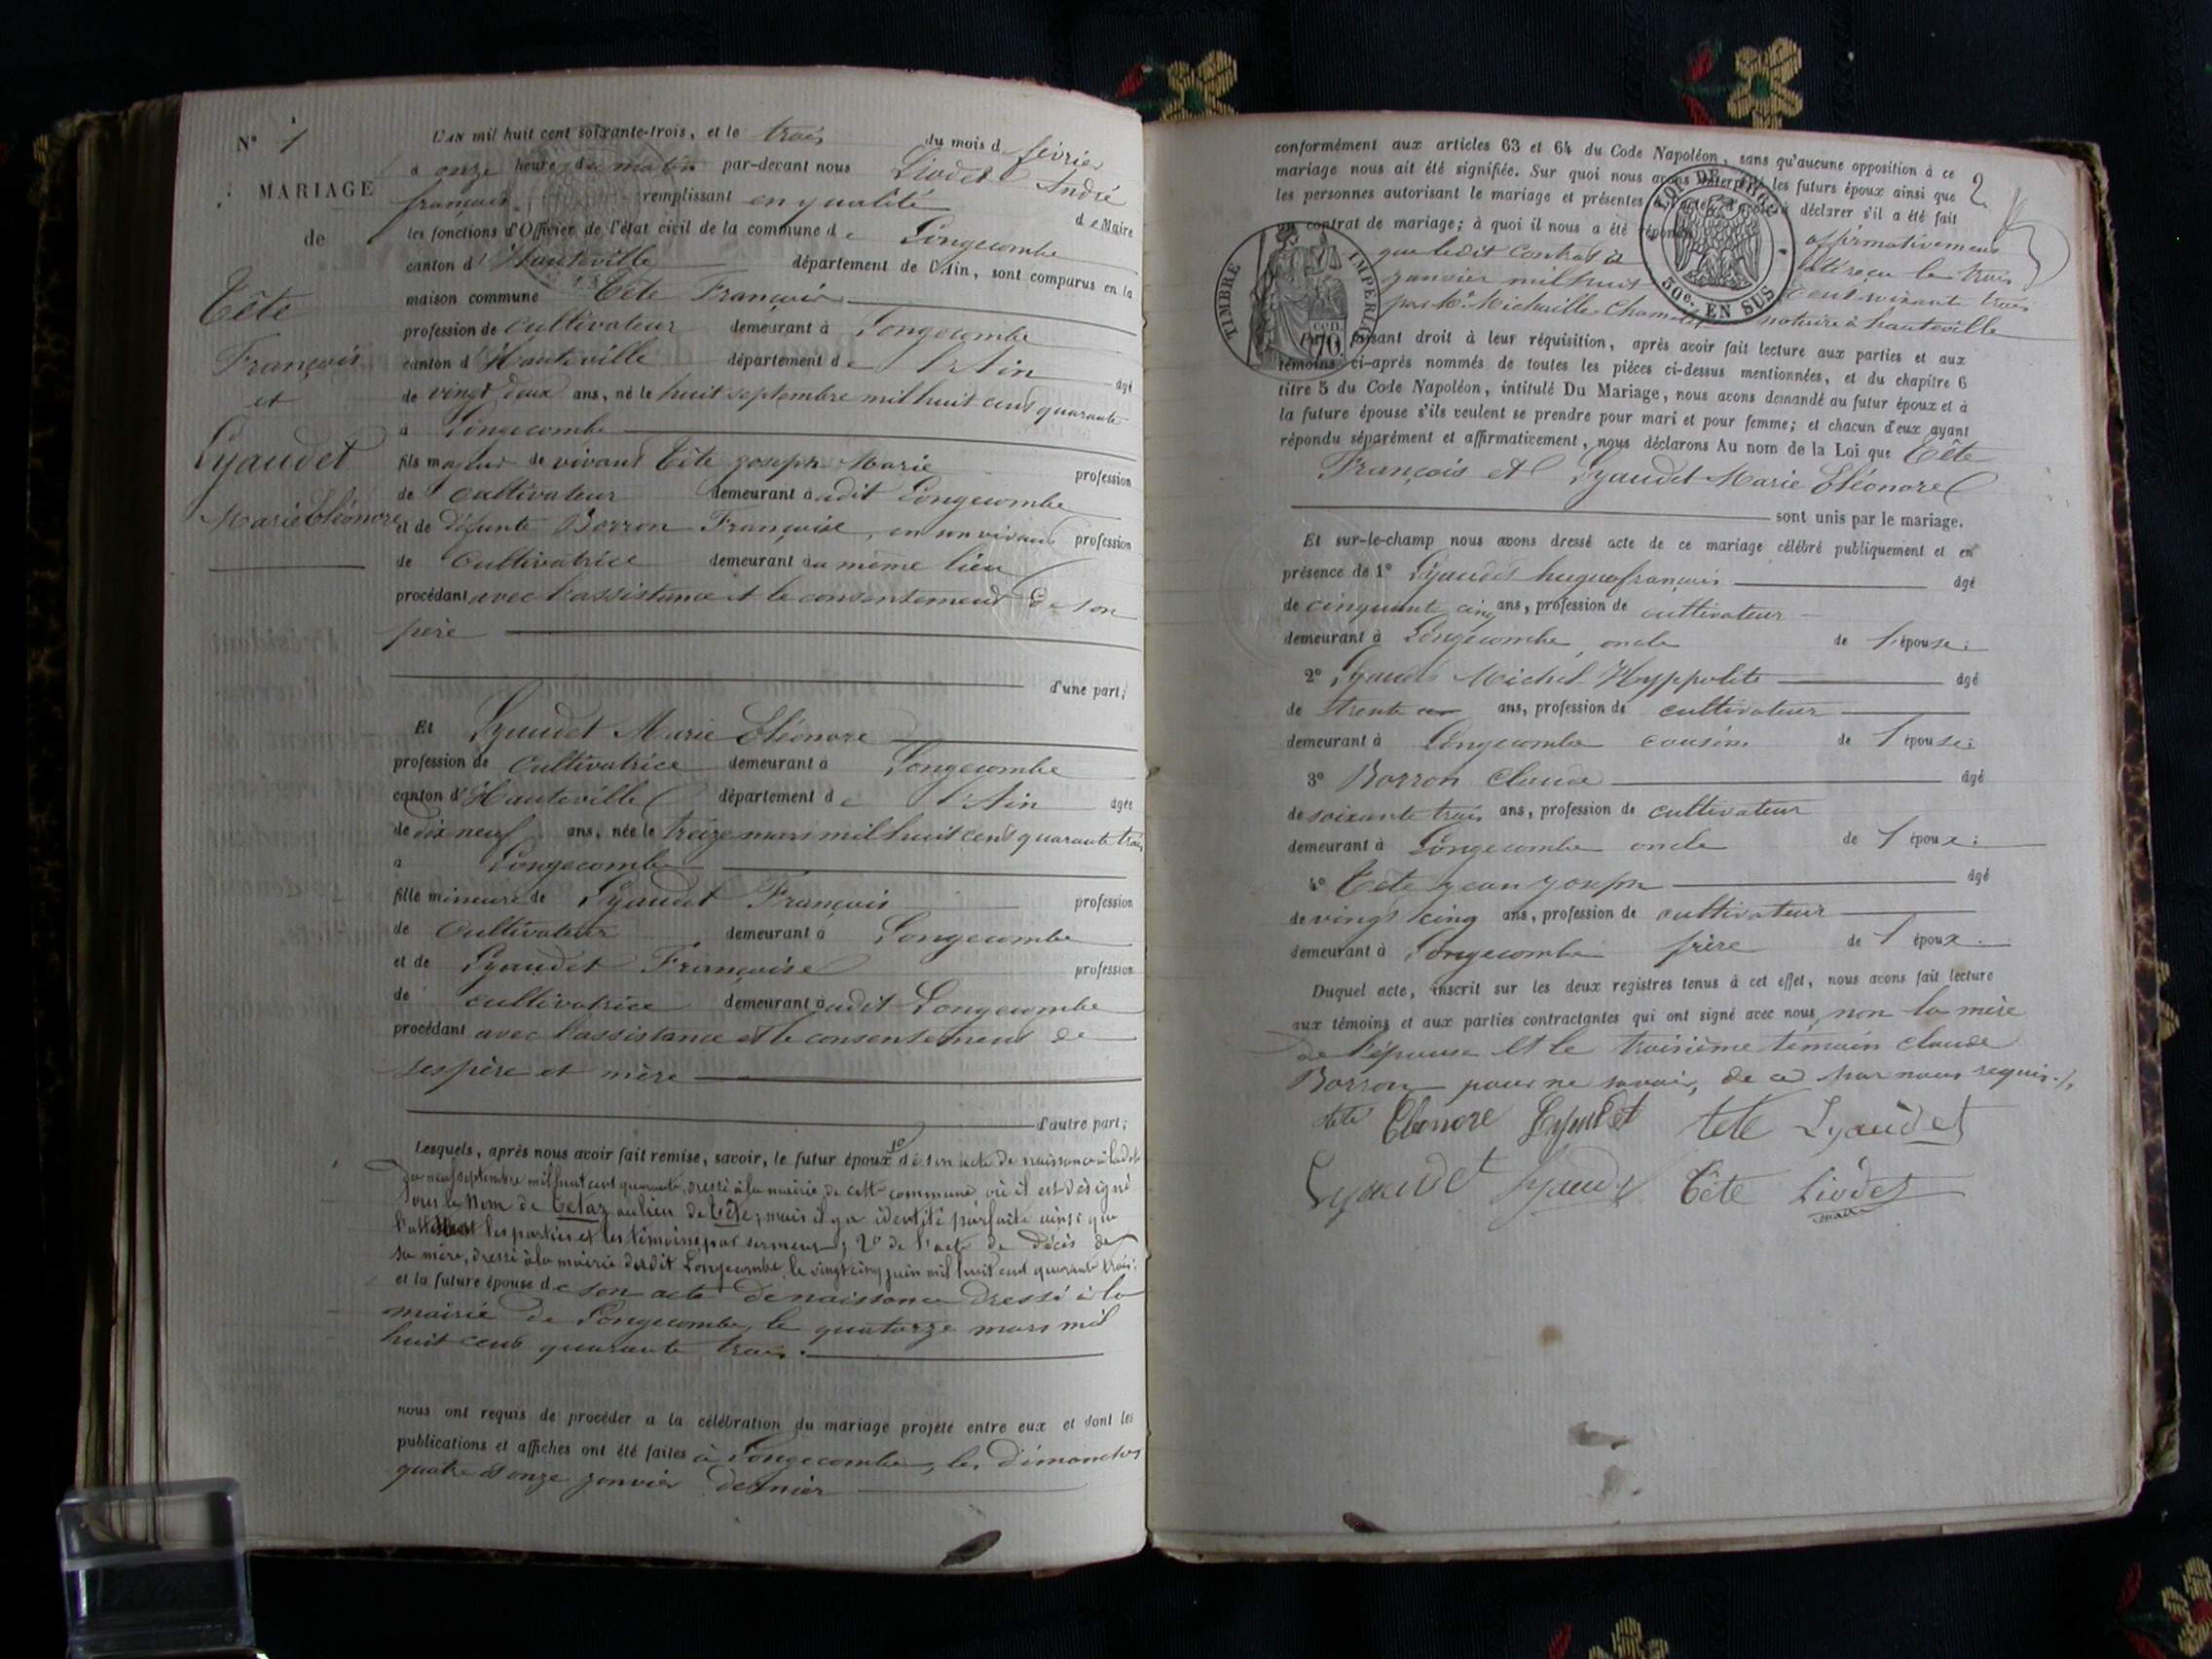 N° 1
MARIAGE
de
Tête
François
et
Lyaudet
Marie Eléonore
L'AN mil huit cent soixante-trois, et le trois du mois de février
à onze heures du matin par-devant nous Liodet André
françois remplissant en qualité de Maire
les fonctions d'Officier de l'état civil de la commune de Longecombe
canton d'Hauteville département de l'Ain, sont comparus en la
maison commune Tête François
profession de cultivateur demeurant à Longecombe
canton d'Hauteville département de l'Ain âgé
de vingt deux ans, né le huit septembre mil huit cent quarante
à Longecombe
fils majeur de vivant Tête Joseph Marie profession
de cultivateur demeurant audit Longecombe
et de défunte Borron Françoise, en son vivant profession
de cultivatrice demeurant au même lieu
procédant avec l'assistance et le consentement de son
père
d'une part;
Et Lyaudet Marie Eléonore
profession de cultivatrice demeurant à Longecombe
canton d'Hauteville département de l'Ain âgée
de dix neuf ans, née le treize mars mil huit cent quarante trois
à Longecombe
fille mineure de Lyaudet François profession
de cultivateur demeurant à Longecombe
et de Lyaudet Françoise profession
de cultivatrice demeurant audit Longecombe
procédant avec l'assistance et le consentement de
ses père et mère
d'autre part;
Lesquels, après nous avoir fait remise, savoir, le futur époux 1° de son acte de naissance à la date
du neuf septembre mil huit cent quarante, dressé à la mairie de cette commune, où il est désigné
sous le nom de Tetaz au lieu de Tête; mais il y a identité parfaite ainsi que
l'attestent les parties et les témoins par serment; 2° de l'acte de décès de
sa mère, dressé à la mairie dudit Longecombe, le vingt cinq juin mil huit cent quarante trois;
et la future épouse de son acte de naissance dressé à la
mairie de Longecombe, le quatorze mars mil
huit cent quarante trois.
nous ont requis de procéder à la célébration du mariage projeté entre eux et dont les
publications et affiches ont été faites à Longecombe, les dimanches
quatre et onze janvier dernier
2
conformément aux articles 63 et 64 du Code Napoléon, sans qu'aucune opposition à ce
mariage nous ait été signifiée. Sur quoi nous avons interpellé les futurs époux ainsi que
les personnes autorisant le mariage et présentes déclarer s'il a été fait
contrat de mariage; à quoi il nous a été répondu affirmativement
que ledit contrat a été reçu le trois
janvier mil huit cent soixante trois
par Me notaire à hauteville
TIMBRE IMPERIAL
cen. 70.
LOI DE
50c. EN SUS
faisant droit à leur réquisition, après avoir fait lecture aux parties et aux
témoins ci-après nommés de toutes les pièces ci-dessus mentionnées, et du chapitre 6
titre 5 du Code Napoléon, intitulé Du Mariage, nous avons demandé au futur époux et à
la future épouse s'ils veulent se prendre pour mari et pour femme; et chacun d'eux ayant
répondu séparément et affirmativement, nous déclarons Au nom de la Loi que Tête
François et Lyaudet Marie Eléonore
sont unis par le mariage.
Et sur-le-champ nous avons dressé acte de ce mariage célébré publiquement et en
présence de 1° Lyaudet françois âgé
de cinquante cinq ans, profession de cultivateur
demeurant à Longecombe, oncle de l'épouse;
2° Lyaudet Michel Hyppolite âgé
de trente ans, profession de cultivateur
demeurant à Longecombe cousin de l'épouse;
3° Borron Claude âgé
de soixante trois ans, profession de cultivateur
demeurant à Longecombe oncle de l'époux;
4° Tête Jean Joseph âgé
de vingt cinq ans, profession de cultivateur
demeurant à Longecombe frère de l'époux.
Duquel acte, inscrit sur les deux registres tenus à cet effet, nous avons fait lecture
aux témoins et aux parties contractantes qui ont signé avec nous, non la mère
de l'épouse et le troisième témoin claude
Borron pour ne savoir, de ce par nous requis.
tête Elonore Lyaudet tete Lyaudet
Lyaudet Lyaudet Tête Liodet
maire